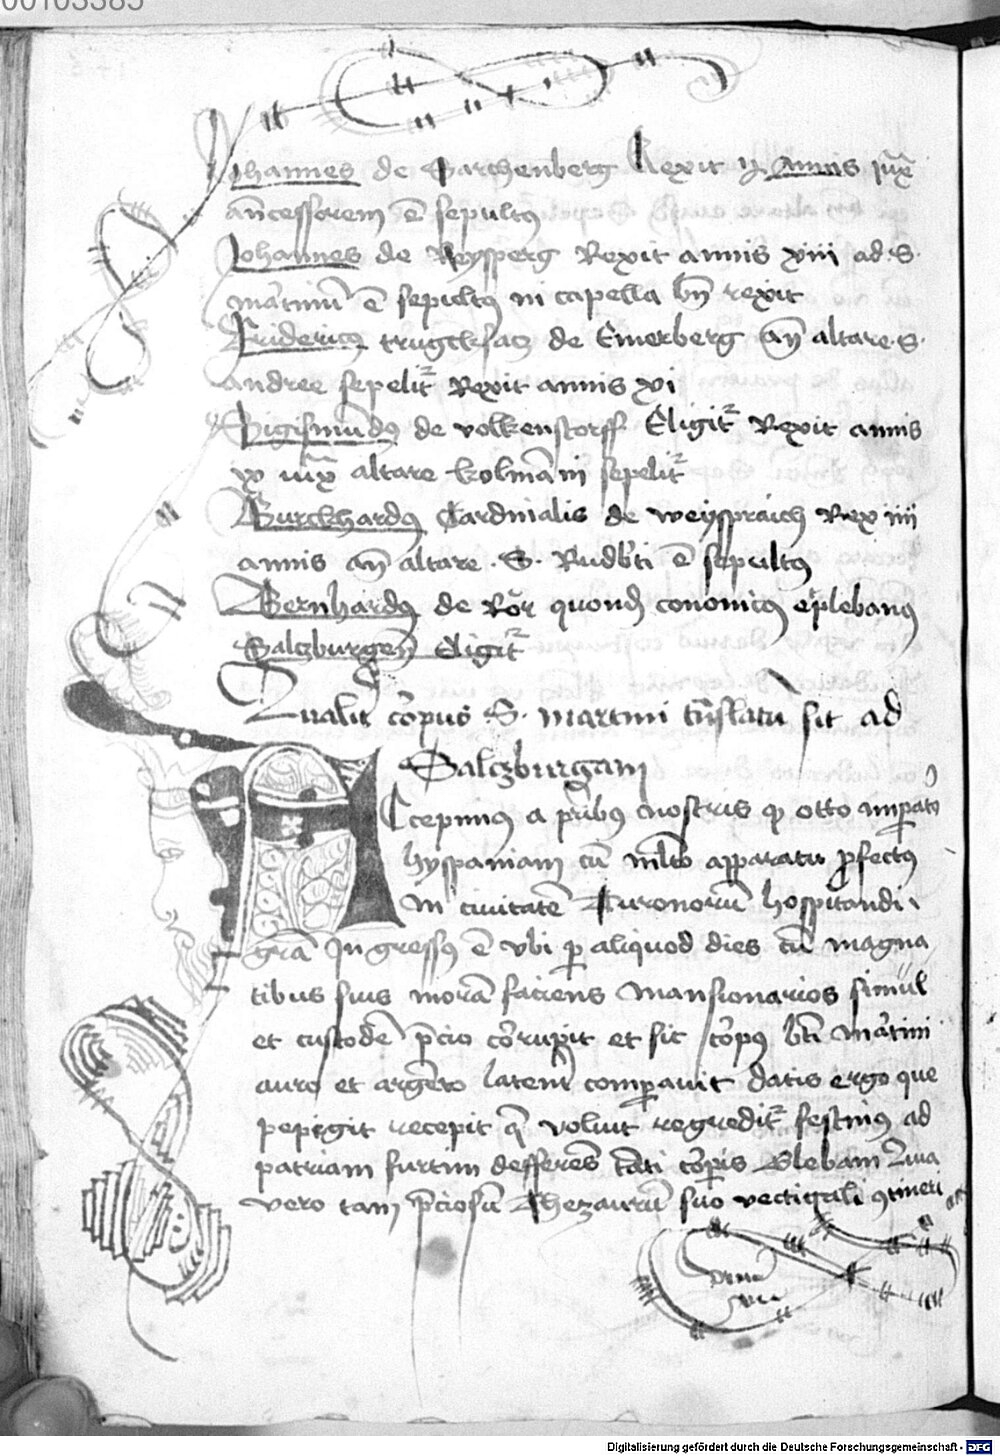 00103385
Johannes de Parchenberg Rexit ij annis iuxͣ
an̄cessorem ē sepultꝰ
Johannes de Reysperg Rexit annis xviii ad S.
martinū ē sepultꝰ in capella bn̄ rexit
Fridericꝰ trugcksacz de Emerberg an̄ altare S.
andree sepelitᷣ Rexit annis xi
Sigismūdꝰ de volkenstorff Eligitᷣ Rexit annis
ix iuxͣ altare kolmāni sepelitᷣ
Burckhardꝰ Cardinalis de weyspraich Rex iiii
annis an̄ altare . S . Rudb̄ti ē sepultꝰ
Bernhardꝰ de Ror quond̄ cononicꝰ et plebanꝰ
Salczburgen̄ Eligitᷣ
Qualit̄ corpus S . martini tn̄slatū sit ad
Salczburgam
Accepimꝰ a pr̄ibꝰ nostris ꝙ otto impato
hyspaniam cū mlto apparatu ꝓfectꝰ
in ciuitatē Turonorū hospitandi
grā Ingressꝰ ē vbi ꝑ aliquod dies cū magna
tibus suis morā faciens Mansionarios simul
et custodē p̄cio corrupit et sic corpꝰ bt̄i Martini
auro et argēto laten̄t comꝑauit datis ergo que
pepigit recepit q̄ voluit regreditᷣ festinꝰ ad
patriam furtim defferēs tāti corꝑis Glebam Qua
vero tam p̄ciosū Thezaurū suo vectigali ꝯtineri
Digitalisierung gefördert durch die Deutsche Forschungsgemeinschaft - DFG